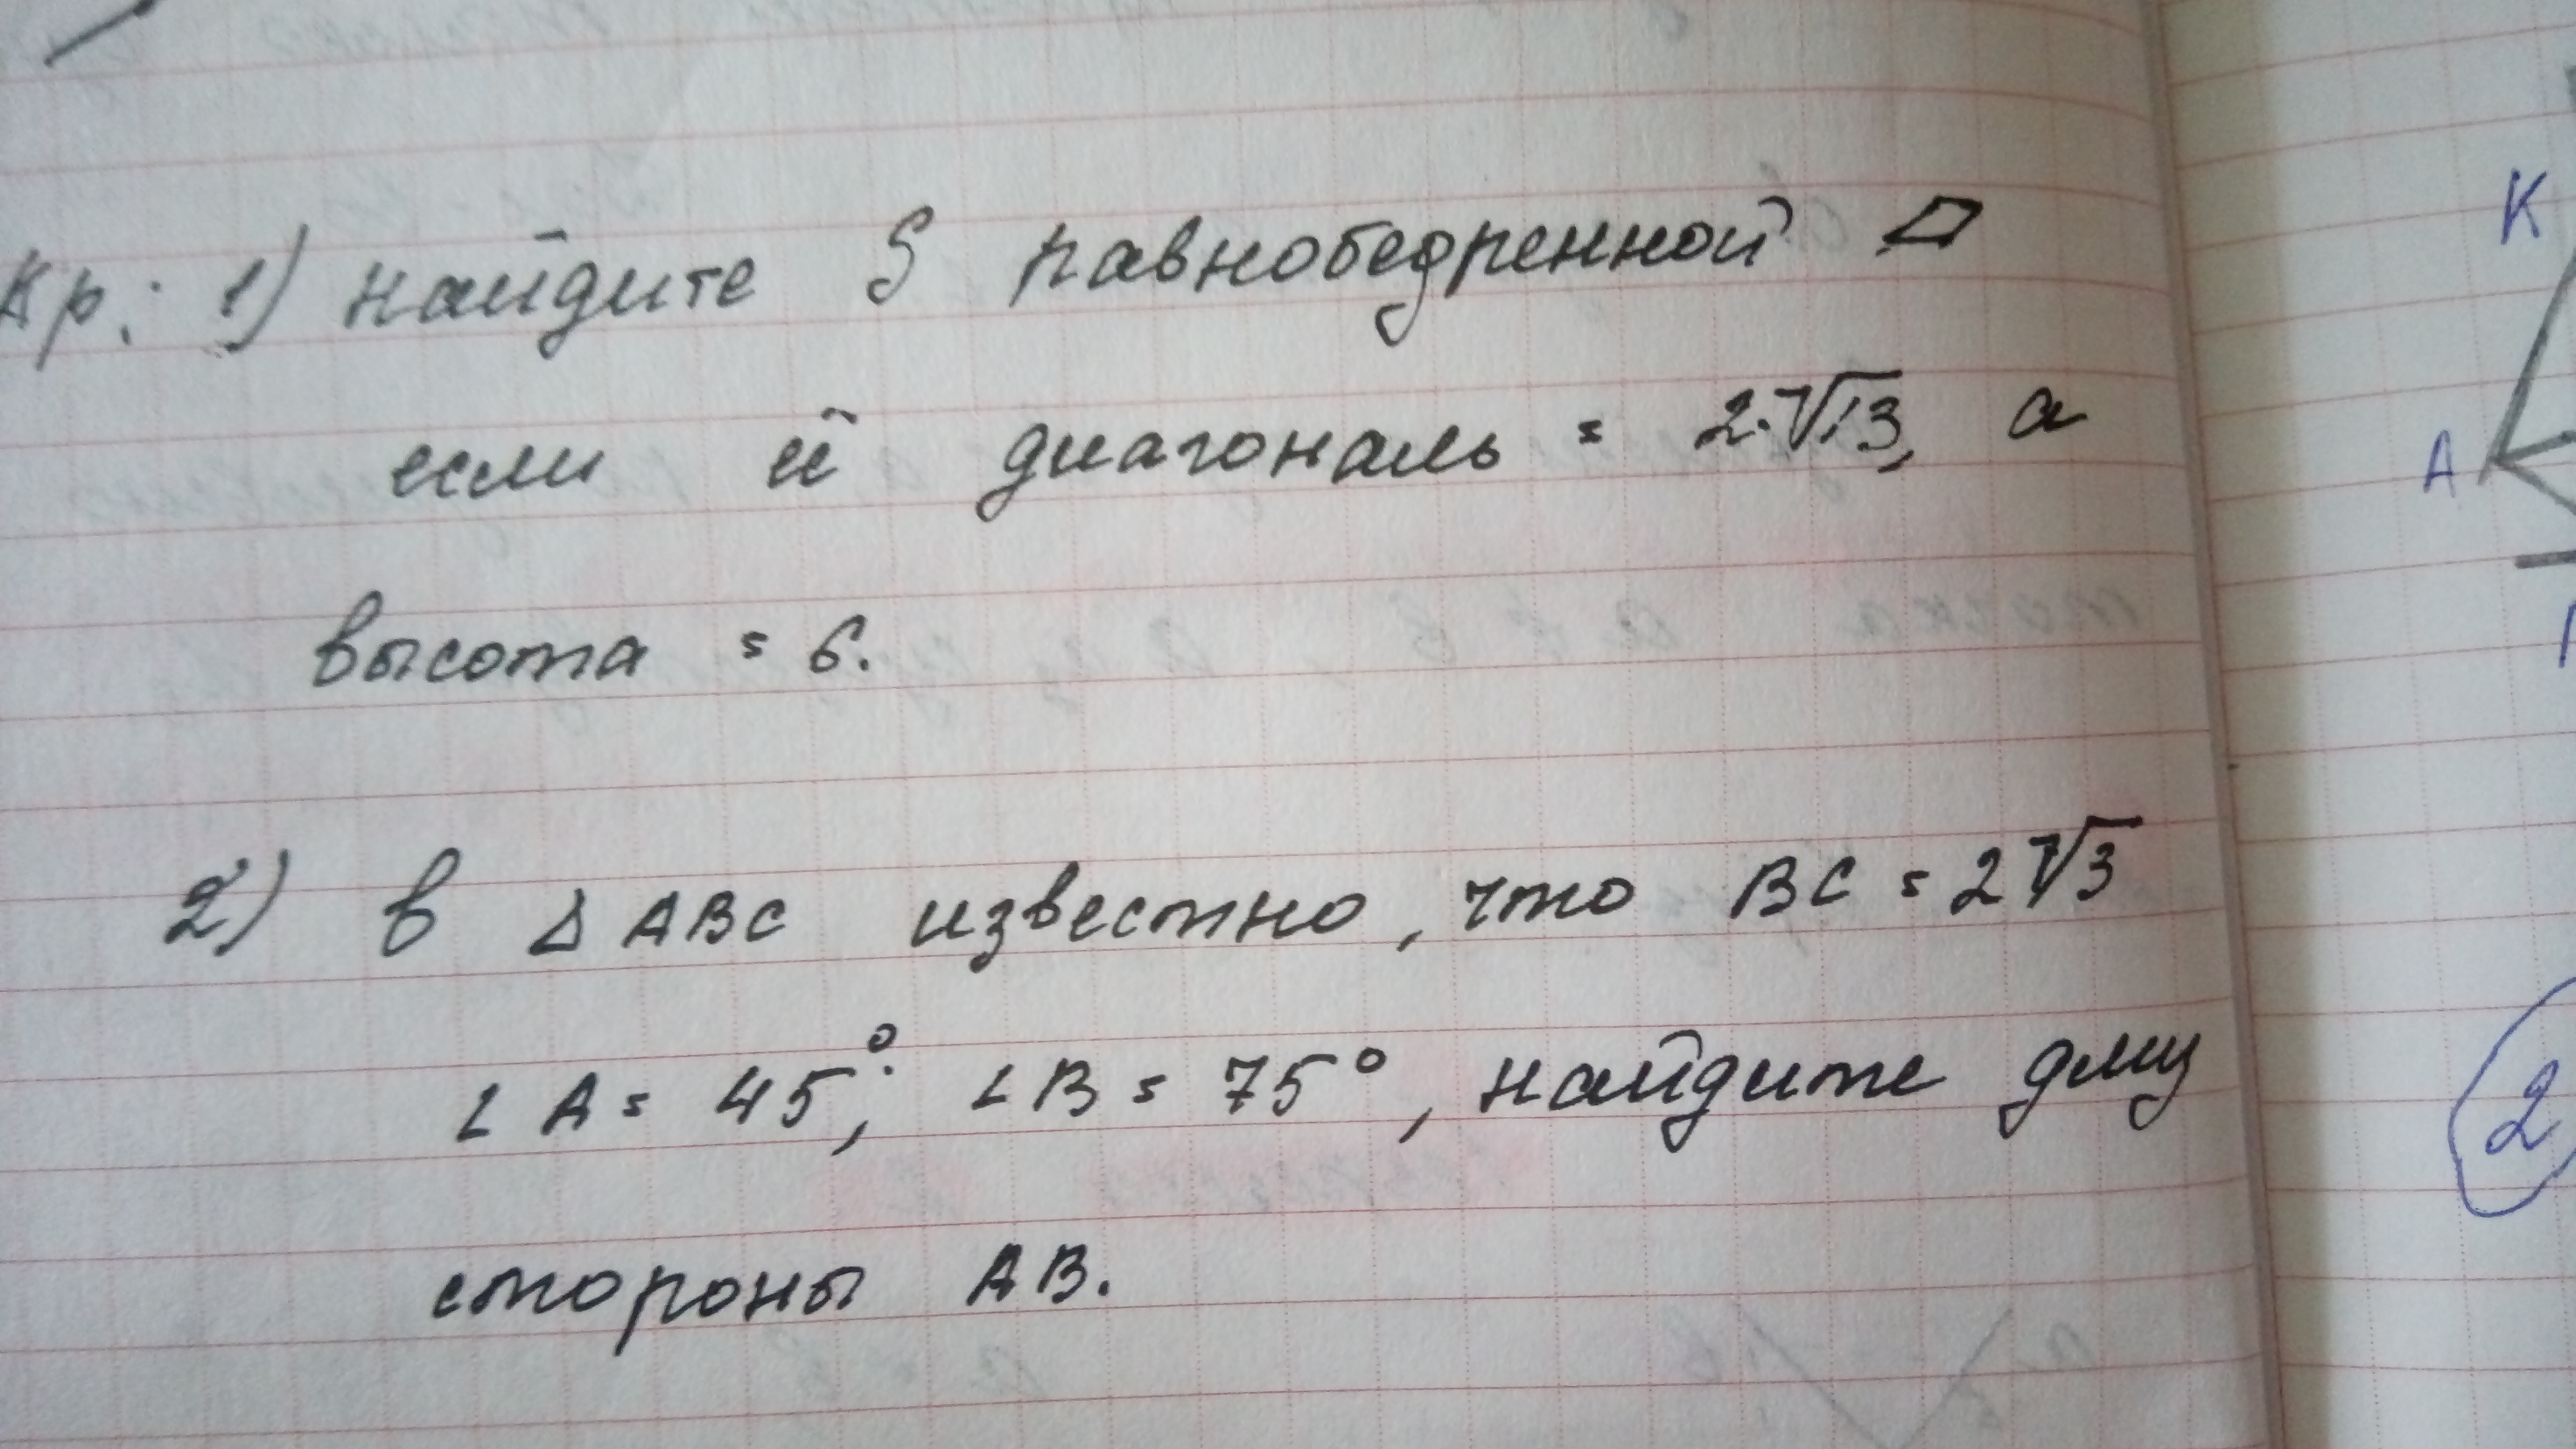 Кр: 1) найдите S равнобедренной ▱
если её диагональ = 2·√13, а
высота = 6.
2) в △ ABC известно, что BC = 2√3
∠A = 45°; ∠B = 75°, найдите длну
стороны AB.
K
A
2